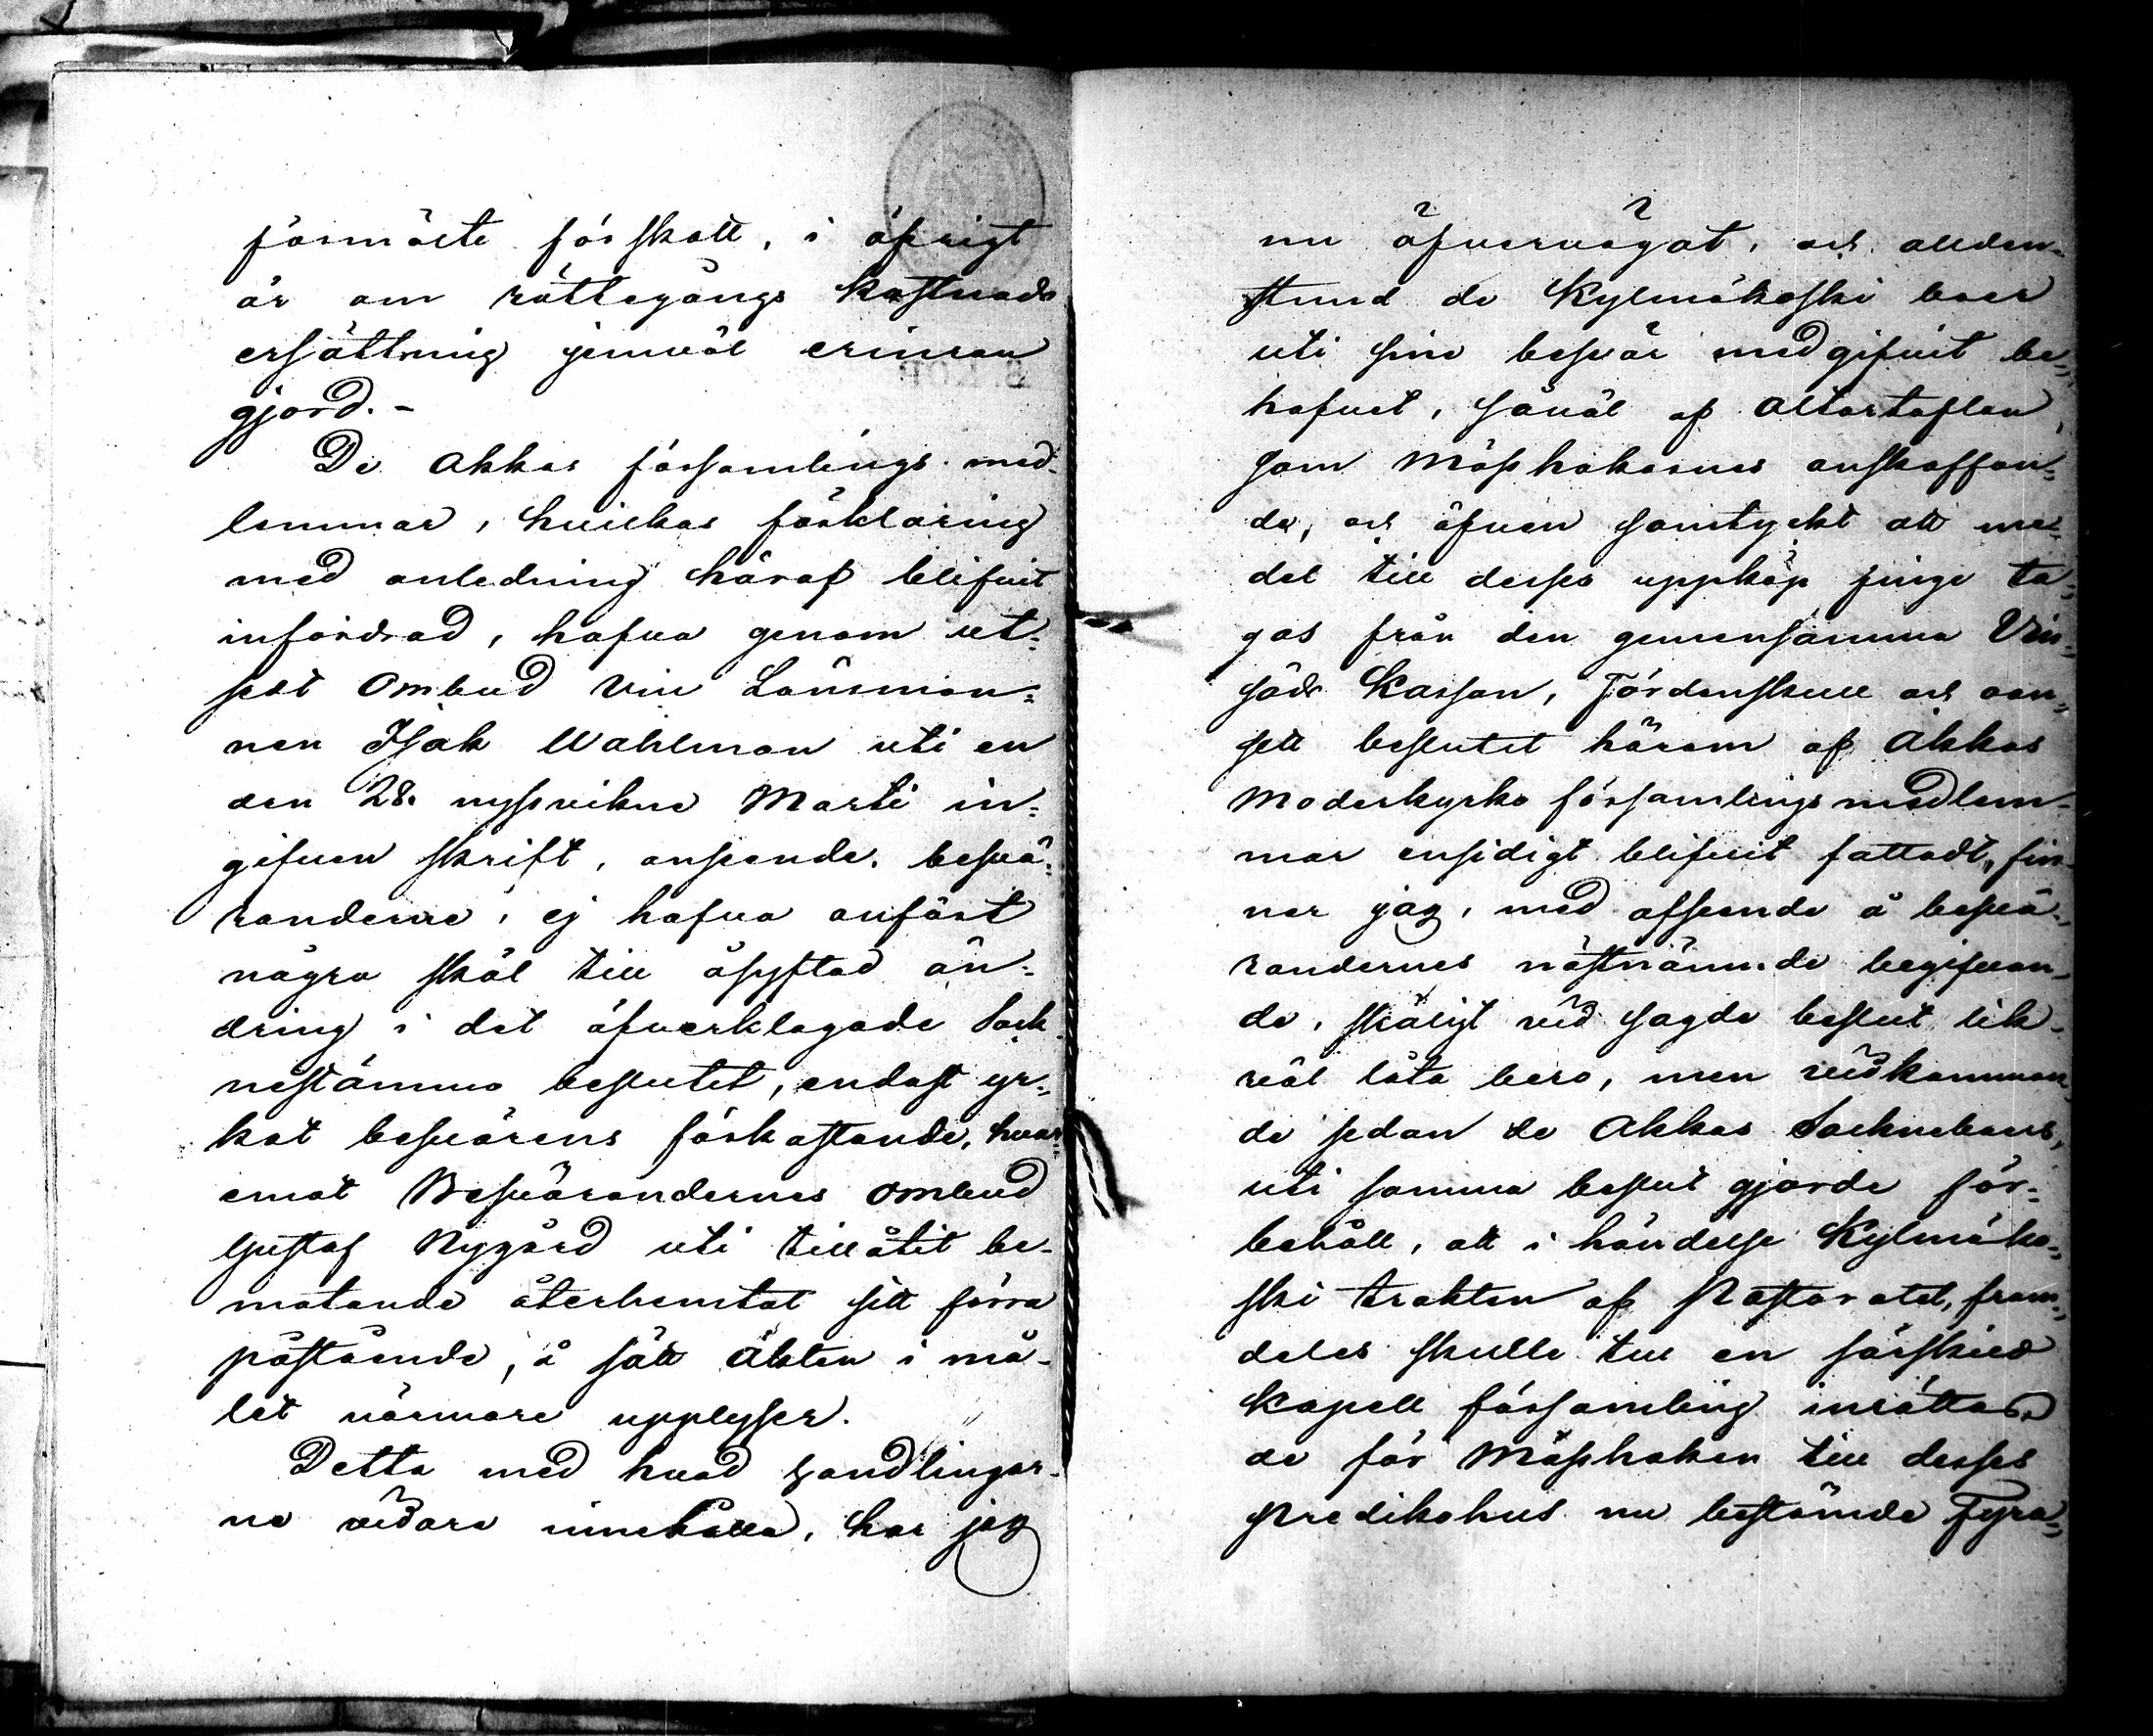 förmälte förskott, i öfrigt
är om rättegångs kostnads
ersättning jemväl erinran
gjord.-
De Akkas församlings med-
lemmar, hvilkas förklaring
med anledning häraf blifvit
infordrad, hafva genom ut-
sedt Ombud Vice Länsman-
nen Isak Wahlman uti en
den 28. nyssvikne Martii in-
gifven skrift, anseende, besvä-
randerne, ej hafva anfört
några skäl till åsyftad än-
dring i det öfverklagade Sock-
nestämmo beslutet, endast yr-
kat besvärens förkastande, hvar-
emot Besvärandernes Ombud
Gustaf Nygård uti tillåtit be-
mötande återhemtat sitt förra
påstående, å sätt Akten i må-
let närmare upplyser.
Detta med hvad handlingar-
ne vidare innehålla, har jag
nu öfvervägat, och allden-
stund de Kylmäkoski boer
uti sine besvär medgifvit be-
hofvet, såväl af Altartaflan,
som Mässhakarnes anskaffan-
de, och äfven samtyckt att me-
del till desses uppköp finge ta-
gas från den gemensamma Vin-
säds Kassan, Tördenskull och oan-
sett beslutet härom af Akkas
Moderkyrko församlings medlem-
mar ensidigt blifvit fattadt, fin-
ner jag, med afseende å besvä-
randernes nästnämnde begifvan-
de, skäligt vid sagde beslut lik-
väl låta bero, men vidkomman-
de sedan de Akkas Sockneboers,
uti samma beslut gjorde för-
behåll, att i händelse Kylmäko-
ski trakten af Pastoratet, fram-
deles skulle till en särskild
Kapell församling inrättas,
de för Mässhaken till desses
Predikohus nu bestämde Fyra-